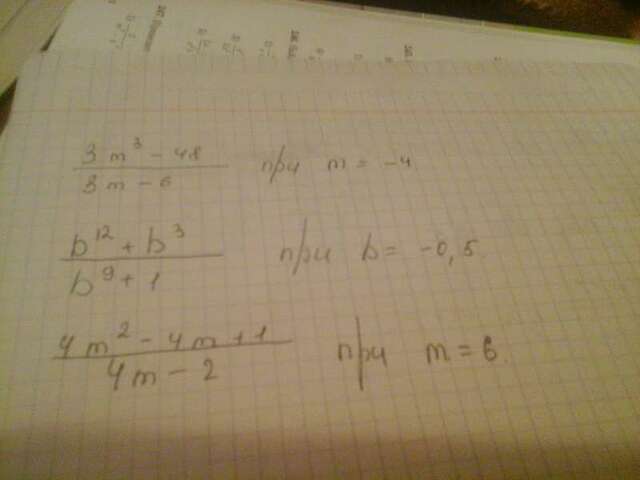 3m³ - 48 / 3m - 6 при m = -4.
b¹² + b³ / b⁹ + 1 при b = -0,5.
4m² - 4m + 1 / 4m - 2 при m = 6.